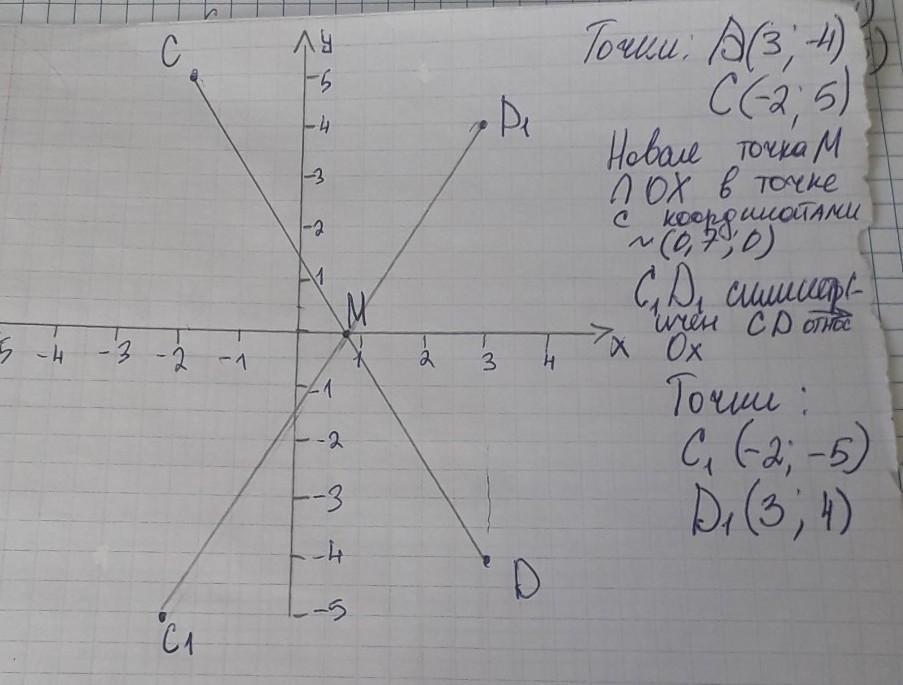 C
y
Точки: D(3; -4)
C(-2; 5)
5
4
D1
3
Новая точка M
∩ OX в точке
с координатами
2
~(0,7; 0)
1
C1D1 симметр-
ичен CD относ
Ox
M
-5 -4 -3 -2 -1 1 2 3 4 x
Точки:
-1
-2
C1 (-2; -5)
-3
D1 (3; 4)
-4
D
-5
C1